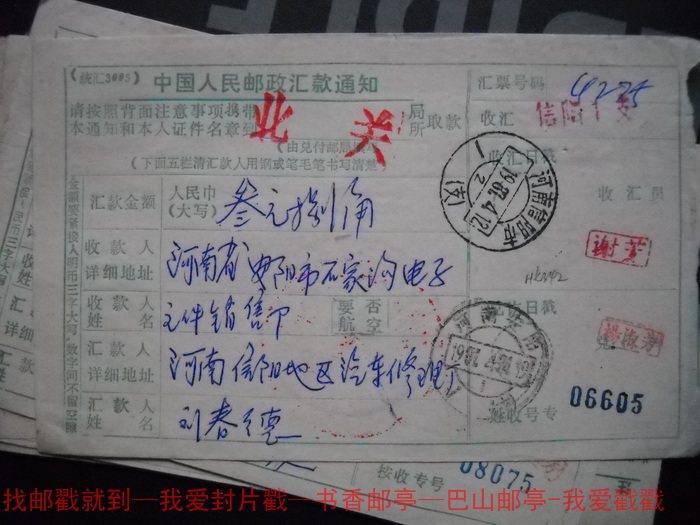 (统汇3005)
中国人民邮政汇款通知
汇票号码
4275
请按照背面注意事项携带
本通知和本人证件名章到
北关
局
所
取款
收汇
信阳
(由兑付邮局填写)
(下面五栏请汇款人用钢或笔毛笔书写清楚)
收汇日戳
河南信阳市
1987.4.12
2
(支)
收汇员
汇款金额
人民币
(大写)
叁元捌角
收款人
详细地址
河南省安阳市石家沟电子
元件销售
收款人
姓名
要否
航空
日戳
河南安阳
汇款人
详细地址
河南信阳地区汽车修理厂
汇款人
姓名
刘春德
号专
06605
按收专号
08075
找邮戳就到—我爱封片戳—书香邮亭—巴山邮亭-我爱戳戳